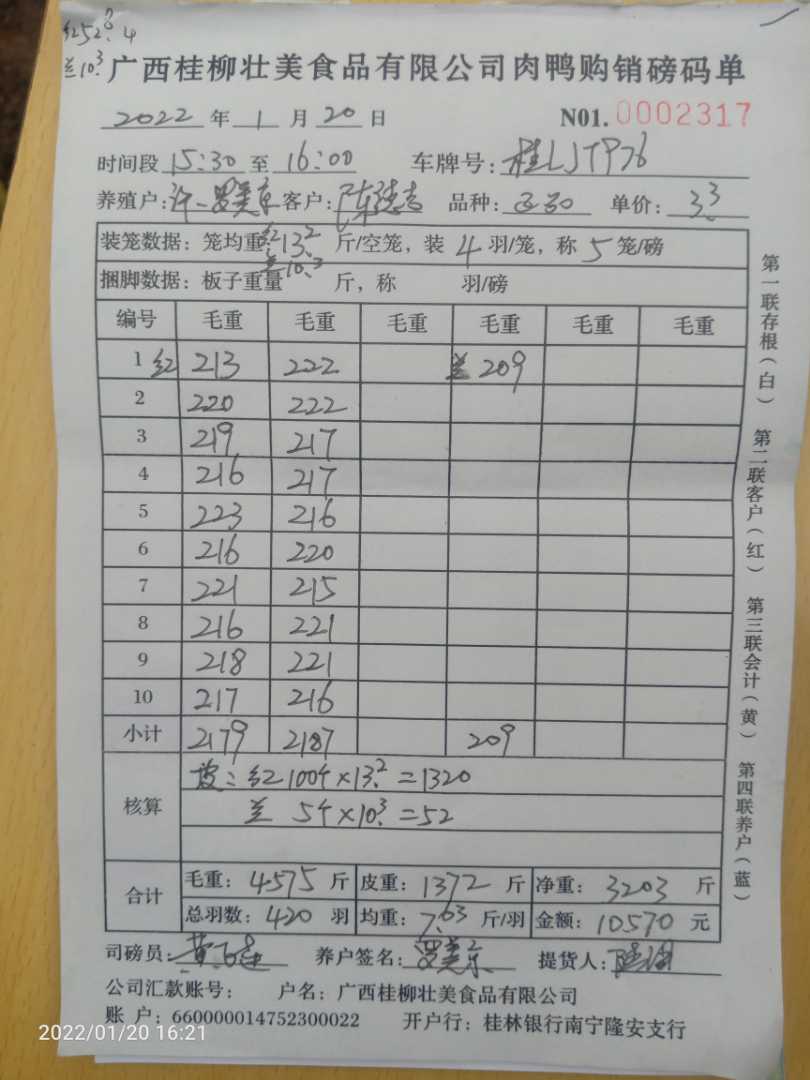 红52? 4
兰10.3
广西桂柳壮美食品有限公司肉鸭购销磅码单
2022 年 1 月 20 日 N01. 0002317
时间段 15:30 至 16:00 车牌号: 桂LJTP76
养殖户: 许 罗美东 客户: 陈德吉 品种: 单价: 3.3
装笼数据: 笼均重 红13.2 斤/空笼, 装 4 羽/笼, 称 5 笼/磅
兰10.3
捆脚数据: 板子重量 斤, 称 羽/磅
编号 毛重 毛重 毛重 毛重 毛重 毛重
1 红 213 222 兰 209
2 220 222
3 219 217
4 216 217
5 223 216
6 216 220
7 221 215
8 216 221
9 218 221
10 217 216
小计 2179 2187 209
核算 皮: 红100个×13.2=1320
兰 5个×10.3=52
合计 毛重: 4575 斤 皮重: 1372 斤 净重: 3203 斤
总羽数: 420 羽 均重: 7.63 斤/羽 金额: 10570 元
司磅员: 养户签名: 罗美东 提货人:
公司汇款账号: 户名: 广西桂柳壮美食品有限公司
账 户: 660000014752300022 开户行: 桂林银行南宁隆安支行
第一联存根(白) 第二联客户(红) 第三联会计(黄) 第四联养户(蓝)
2022/01/20 16:21